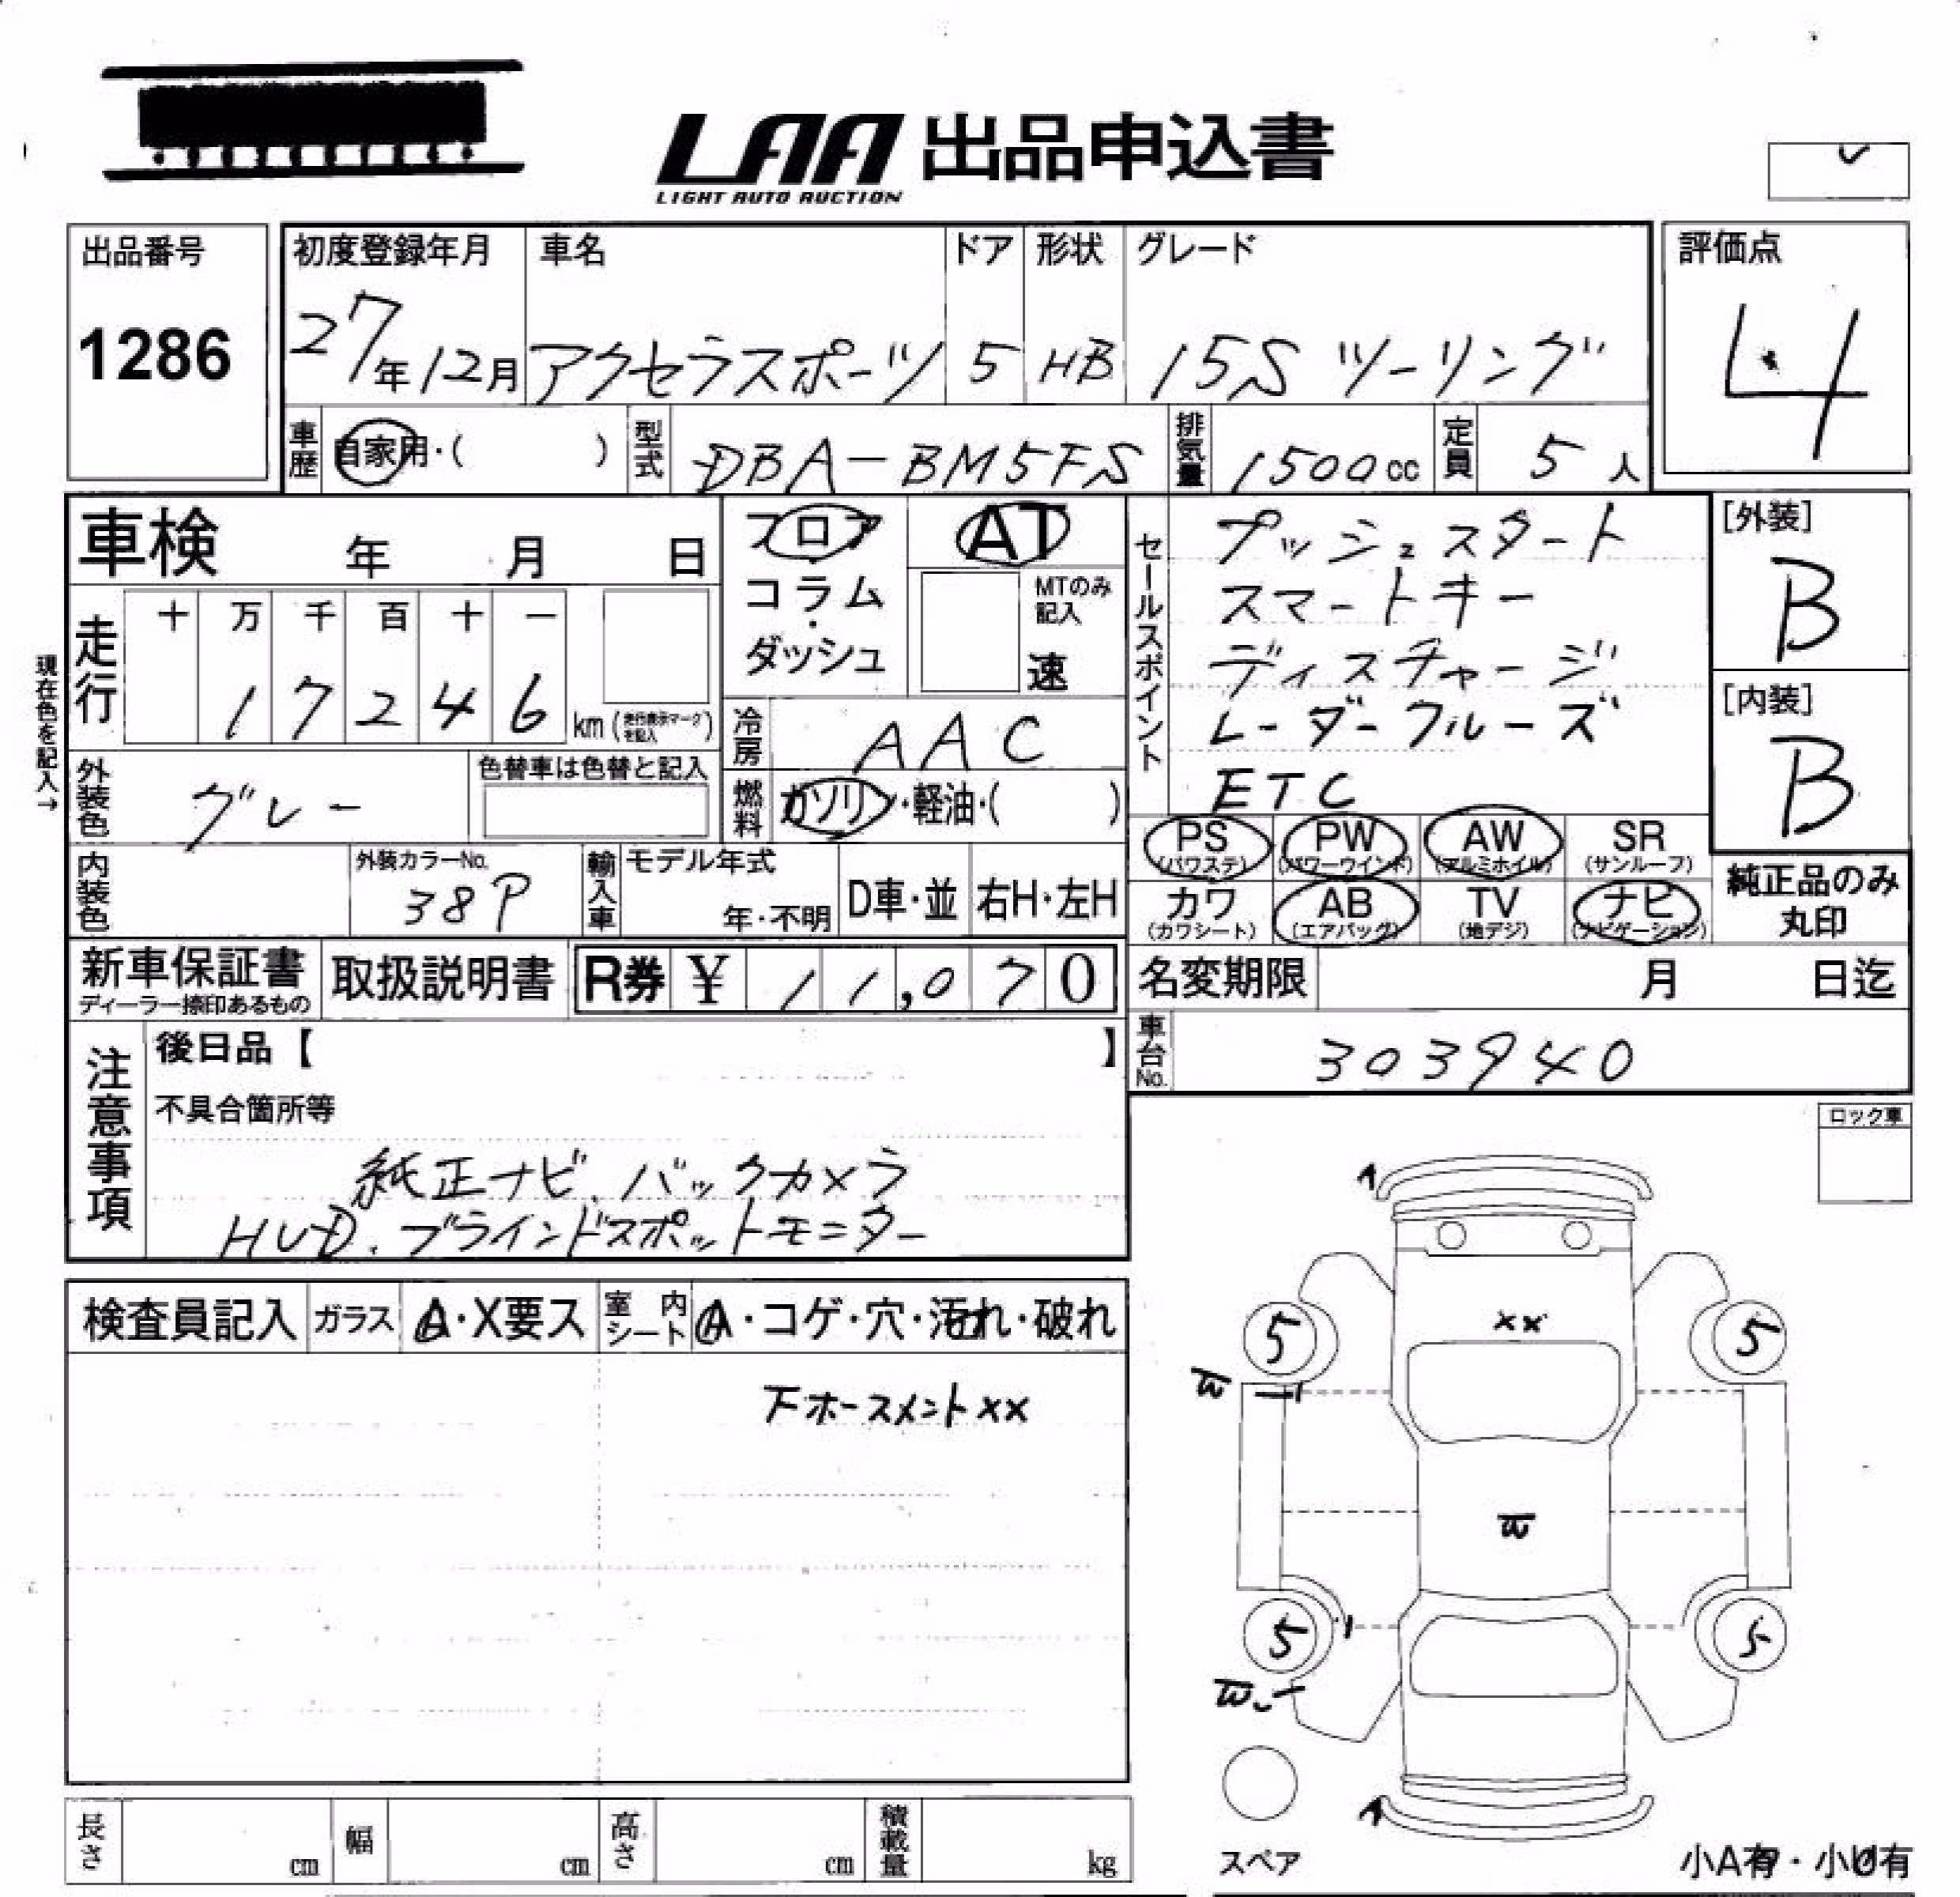 LAA 出品申込書
LIGHT AUTO AUCTION
出品番号
1286
初度登録年月 車名 ドア 形状 グレード
27年12月 アクセラスポーツ 5 HB 15S ツーリング
評価点
4
車歴 自家用・( ) 型式 DBA-BM5FS 排気量 1500cc 定員 5人
車検 年 月 日
フロア・コラム・ダッシュ
AT
MTのみ記入
速
セールスポイント
プッシュスタート
スマートキー
ディスチャージ
レーダークルーズ
ETC
[外装]
B
[内装]
B
現在色を記入→
走行 十 万 千 百 十 一
17246 km (走行表示マークを記入)
冷房 AAC
外装色 グレー 色替車は色替と記入
燃料 ガソリン・軽油・( )
PS (パワステ) PW (パワーウインド) AW (アルミホイル) SR (サンルーフ)
カワ (カワシート) AB (エアバッグ) TV (地デジ) ナビ (ナビゲーション)
純正品のみ丸印
内装色 外装カラーNo. 38P 輸入車 モデル年式 年・不明 D車・並 右H・左H
新車保証書 取扱説明書 R券 ¥ 11,070
ディーラー捺印あるもの
名変期限 月 日迄
車台No. 303940
注意事項
後日品【 】
不具合箇所等
純正ナビ、バックカメラ
HUD、ブラインドスポットモニター
ロック車
検査員記入 ガラス A・X要ス 室内シート A・コゲ・穴・汚れ・破れ
下ホースメント××
××
5 5
5 5
スペア
長さ cm 幅 cm 高さ cm 積載量 kg
小A有・小U有